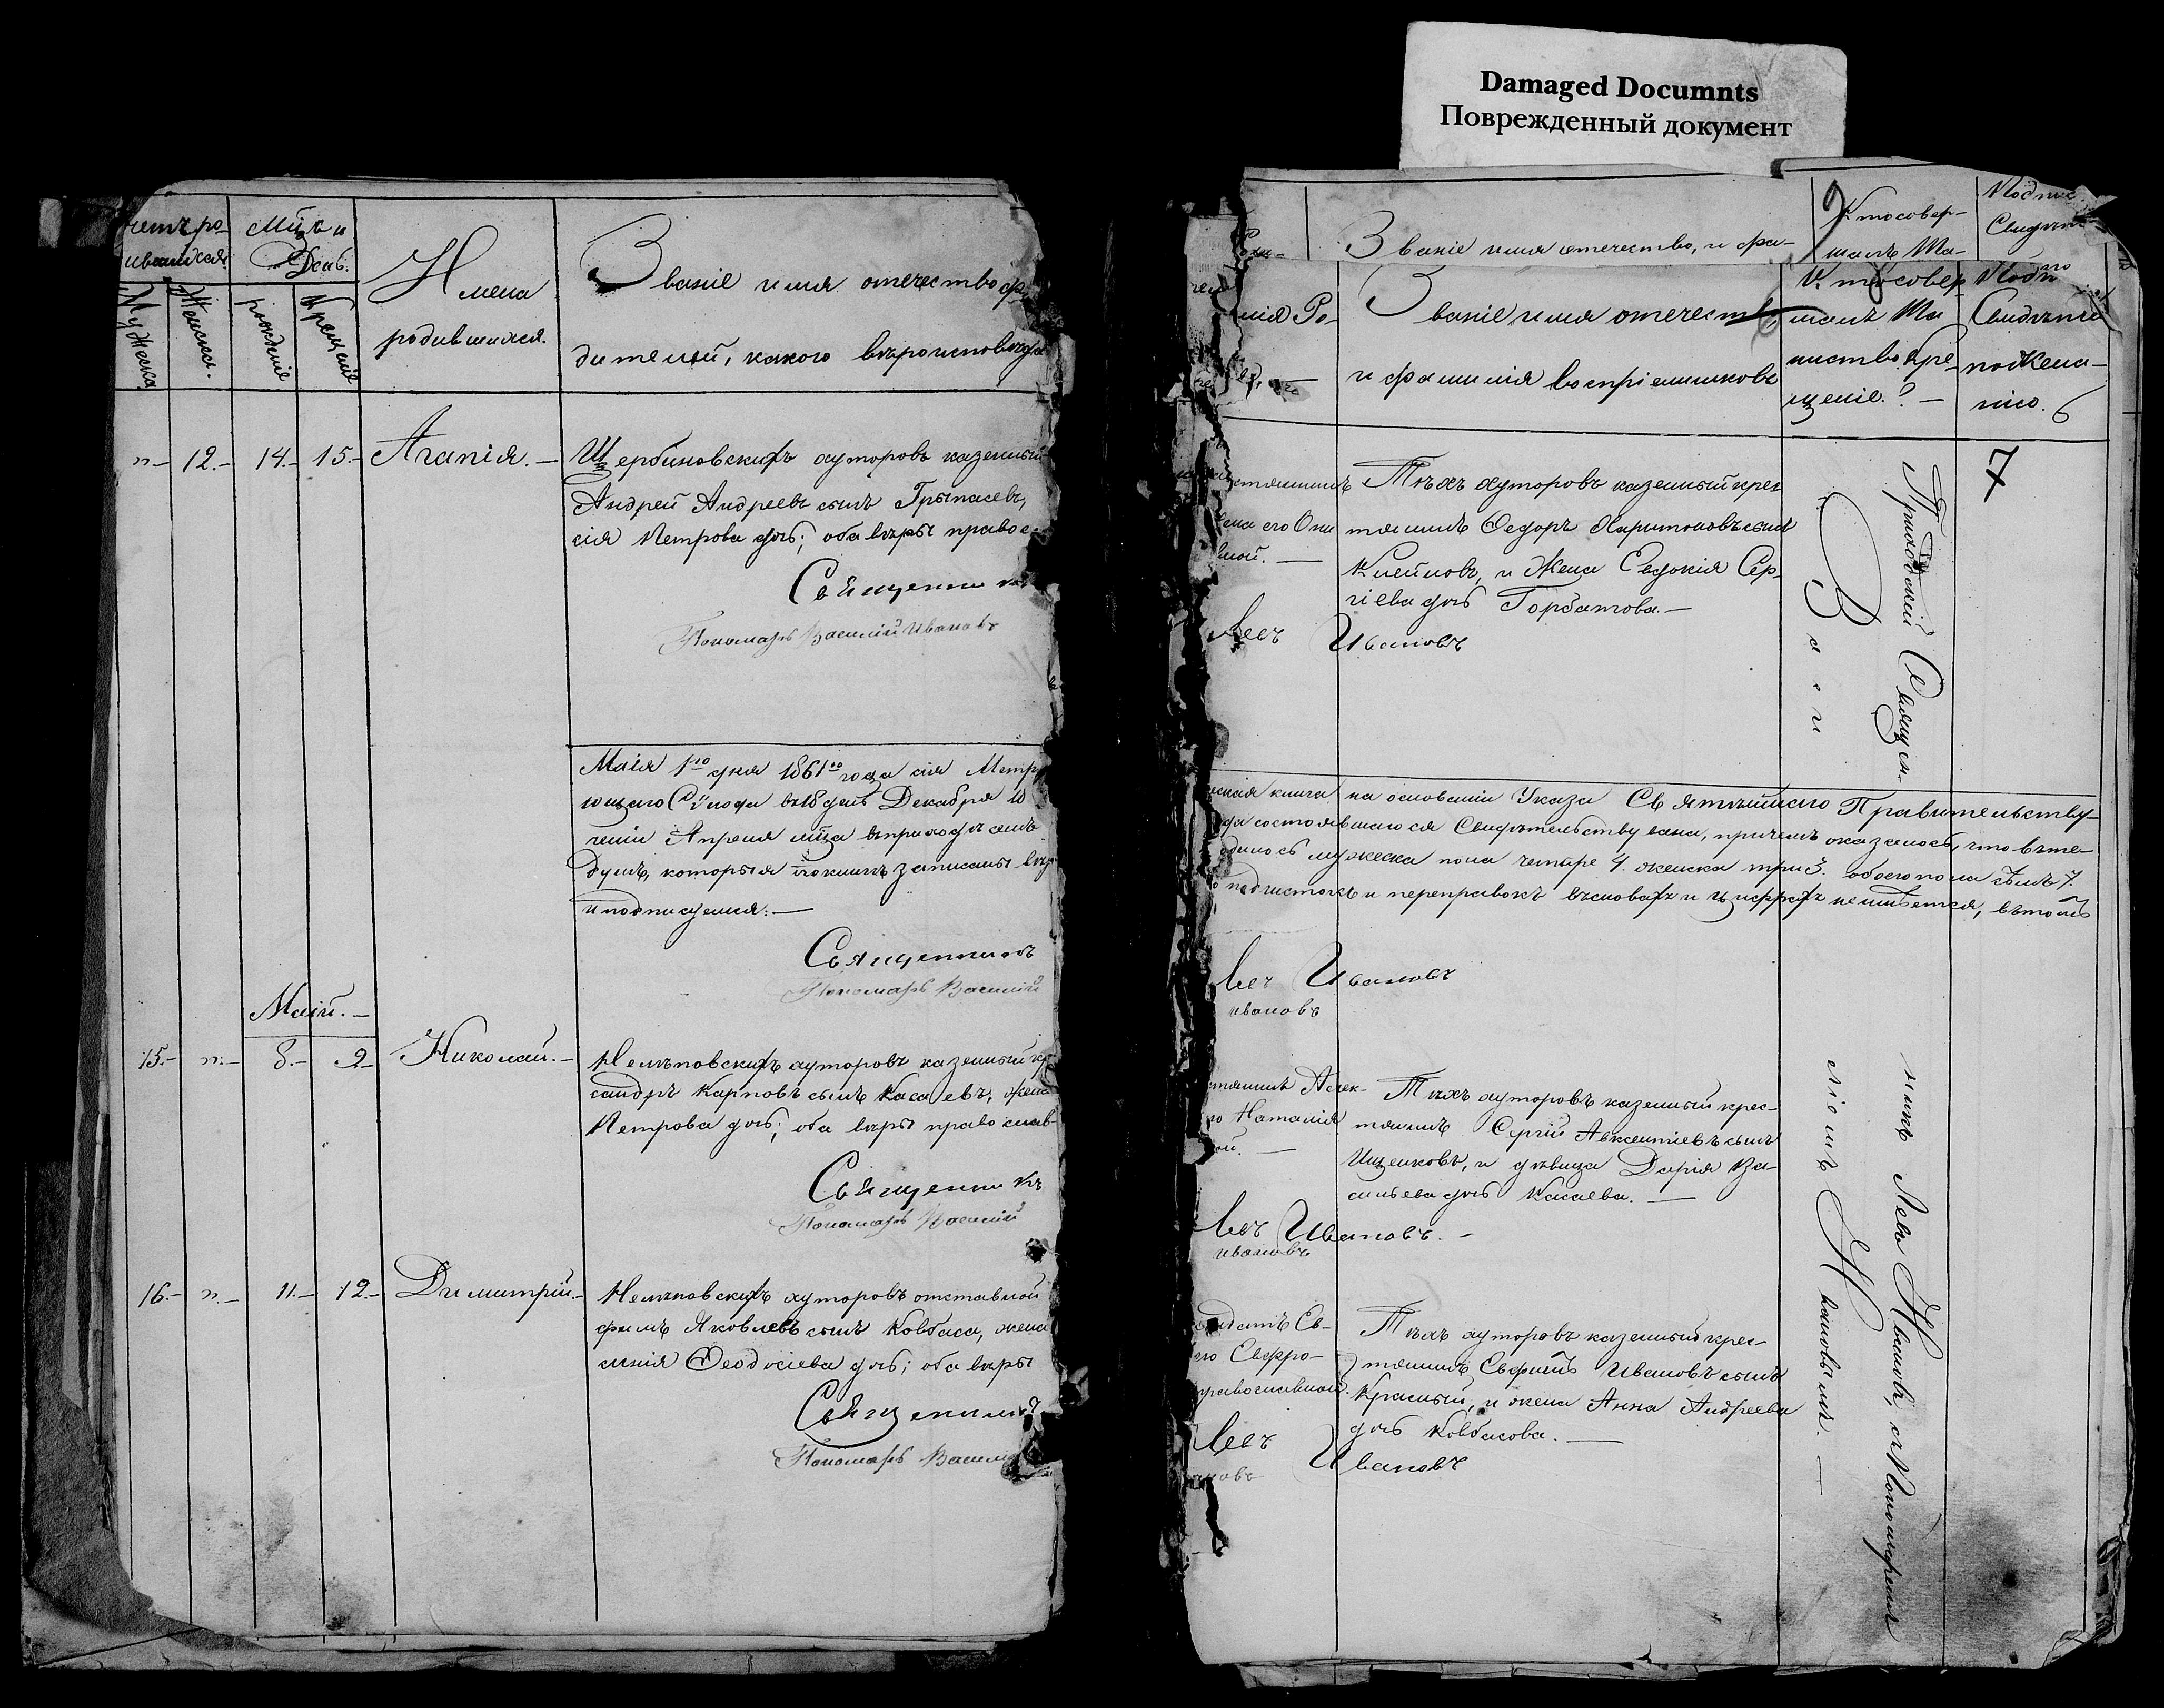 Damaged Documnts
Поврежденный документ
четъ ро-
Мца и
День.
Имена
родившихся.
Званіе имя отечество и фа-
дителей, какого вѣроисповѣда
Мужеска
Женска.
рожденіе
Крещеніе
12.- 14.- 15.- Агапія.-
Щербиновскихъ хуторовъ казенный
Андрей Андреевъ сынъ
сія Петрова дочь; оба вѣры правос
Священникъ
Пономарь Василій Ивановъ
Маія 1го дня 1861го года сія Метри
ющаго Сѵнода въ 18 день Декабря 18
ченіи Апреля мца въ приходѣ семъ
душъ, которыя по книгѣ записаны
и подписуемся:-
Священникъ
Пономарь Василій
Маій.-
15.- 8.- 9.- Николай.-
хуторовъ казенный кр
сандръ Карповъ сынъ Касаевъ, жена
Петрова дочь; оба вѣры православ-
Священникъ
Пономарь Василій
16.- 11.- 12.- Димитрій.-
хуторовъ отставной
фимъ Яковлевъ сынъ Ковбаса, жена
синія Феодосіева дочь; оба вѣры
Священникъ
Пономарь Васил
Званіе имя отечество, и фа-
Кто совер-
шалъ Та-
Подпис
Свидѣте
нія Ро-
Званіе имя отечество,
и фамилія воспріемниковъ
Кто совер
шалъ Та
инство кре-
щенія?-
Подп
Свидѣте
по Жела-
нію. 6
7
стянинъ
жена его Они
вной.-
Тѣхъ хуторовъ казенный крес
тянинъ Федоръ Харитоновъ сынъ
Клейновъ, и Жена Евдокія Сер-
гіева дочь Горбатова.-
Левъ Ивановъ
ческая книга на основаніи Указа Святѣйшаго Правительству-
года состоявшагося Свидѣтельствувана, причемъ оказалось, что въ те-
родилось мужеска пола четыре 4. женска три 3. обоего пола семь 7.
подчистокъ и переправокъ въ словахъ и цыфрахъ не имѣется, въ томъ
Левъ Ивановъ
Ивановъ
стянинъ Алек-
го Наталія
ной.-
Тѣхъ хуторовъ казенный крес-
тянинъ Сергій Авксентіевъ сынъ
Ищенковъ, и дѣвица Дарія Ва-
сильева дочь Касаева.-
Левъ Ивановъ.-
Ивановъ
солдатъ Ев-
го Евфро-
православной.
Тѣхъ хуторовъ казенный крес-
тянинъ Евфимъ Ивановъ сынъ
Красный, и жена Анна Андреева
дочь Ковбасова.-
Левъ Ивановъ
ановъ
Приходскій Священ-
никъ Левъ Ивановъ, съ Пономаремъ
Васи
ліемъ Ивановымъ.-